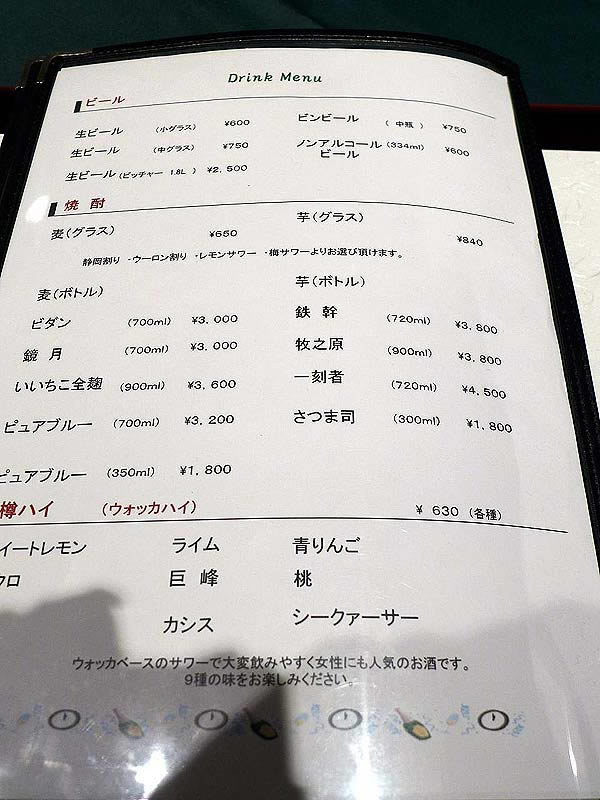 Drink Menu
ビール
生ビール (小グラス) ¥600 ビンビール ( 中瓶 ) ¥750
生ビール (中グラス) ¥750 ノンアルコールビール (334ml) ¥600
生ビール (ピッチャー 1.8L ) ¥2,500
焼 酎
麦(グラス) ¥650 芋(グラス) ¥840
静岡割り ・ウーロン割り ・レモンサワー ・梅サワーよりお選び頂けます。
麦(ボトル) 芋(ボトル)
ビダン (700ml) ¥3,000 鉄 幹 (720ml) ¥3,800
鏡 月 (700ml) ¥3,000 牧之原 (900ml) ¥3,800
いいちこ全麹 (900ml) ¥3,600 一刻者 (720ml) ¥4,500
ピュアブルー (700ml) ¥3,200 さつま司 (300ml) ¥1,800
ピュアブルー (350ml) ¥1,800
樽ハイ (ウォッカハイ) ¥ 630 (各種)
イートレモン ライム 青りんご
クロ 巨 峰 桃
カシス シークァーサー
ウォッカベースのサワーで大変飲みやすく女性にも人気のお酒です。
9種の味をお楽しみください。